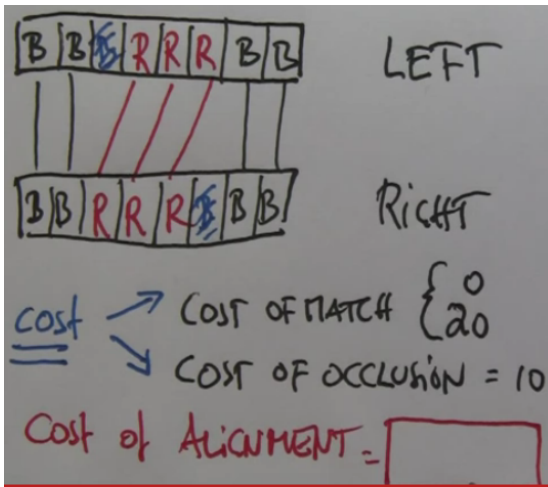 B B B R R R B B LEFT
B B R R R B B B RiGHT
cost COST OF MATCH { 0
20
COST OF OCCLUSION = 10
Cost of ALiGNMENT =